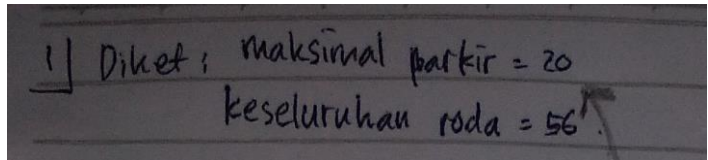 1] Diket : maksimal parkir = 20
keseluruhan roda = 56